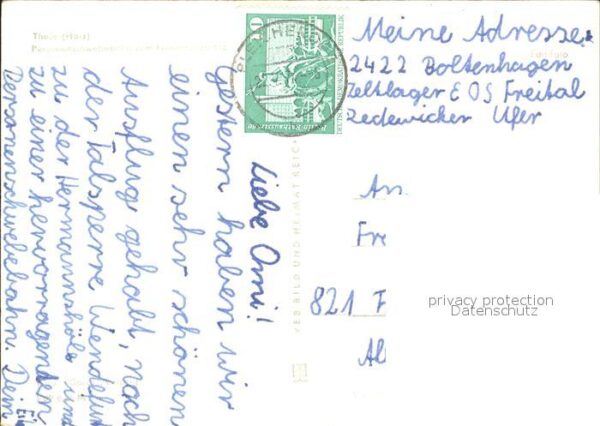 Meine Adresse:
2422 Boltenhagen
Zeltlager EOS Freital
Redewischer Ufer
Liebe Omi!
Gestern haben wir
einen sehr schönen
Ausflug gehabt, nach
der Talsperre Wendefurt
zu der Hermannshöle und
zu einer hervorragenden
Personenschwebebahn. Dein
An
Fre
821 F
Al
Thale (Harz)
DEUTSCHE DEMOKRATISCHE REPUBLIK
VEB BILD UND HEIMAT REICH
privacy protection
Datenschutz